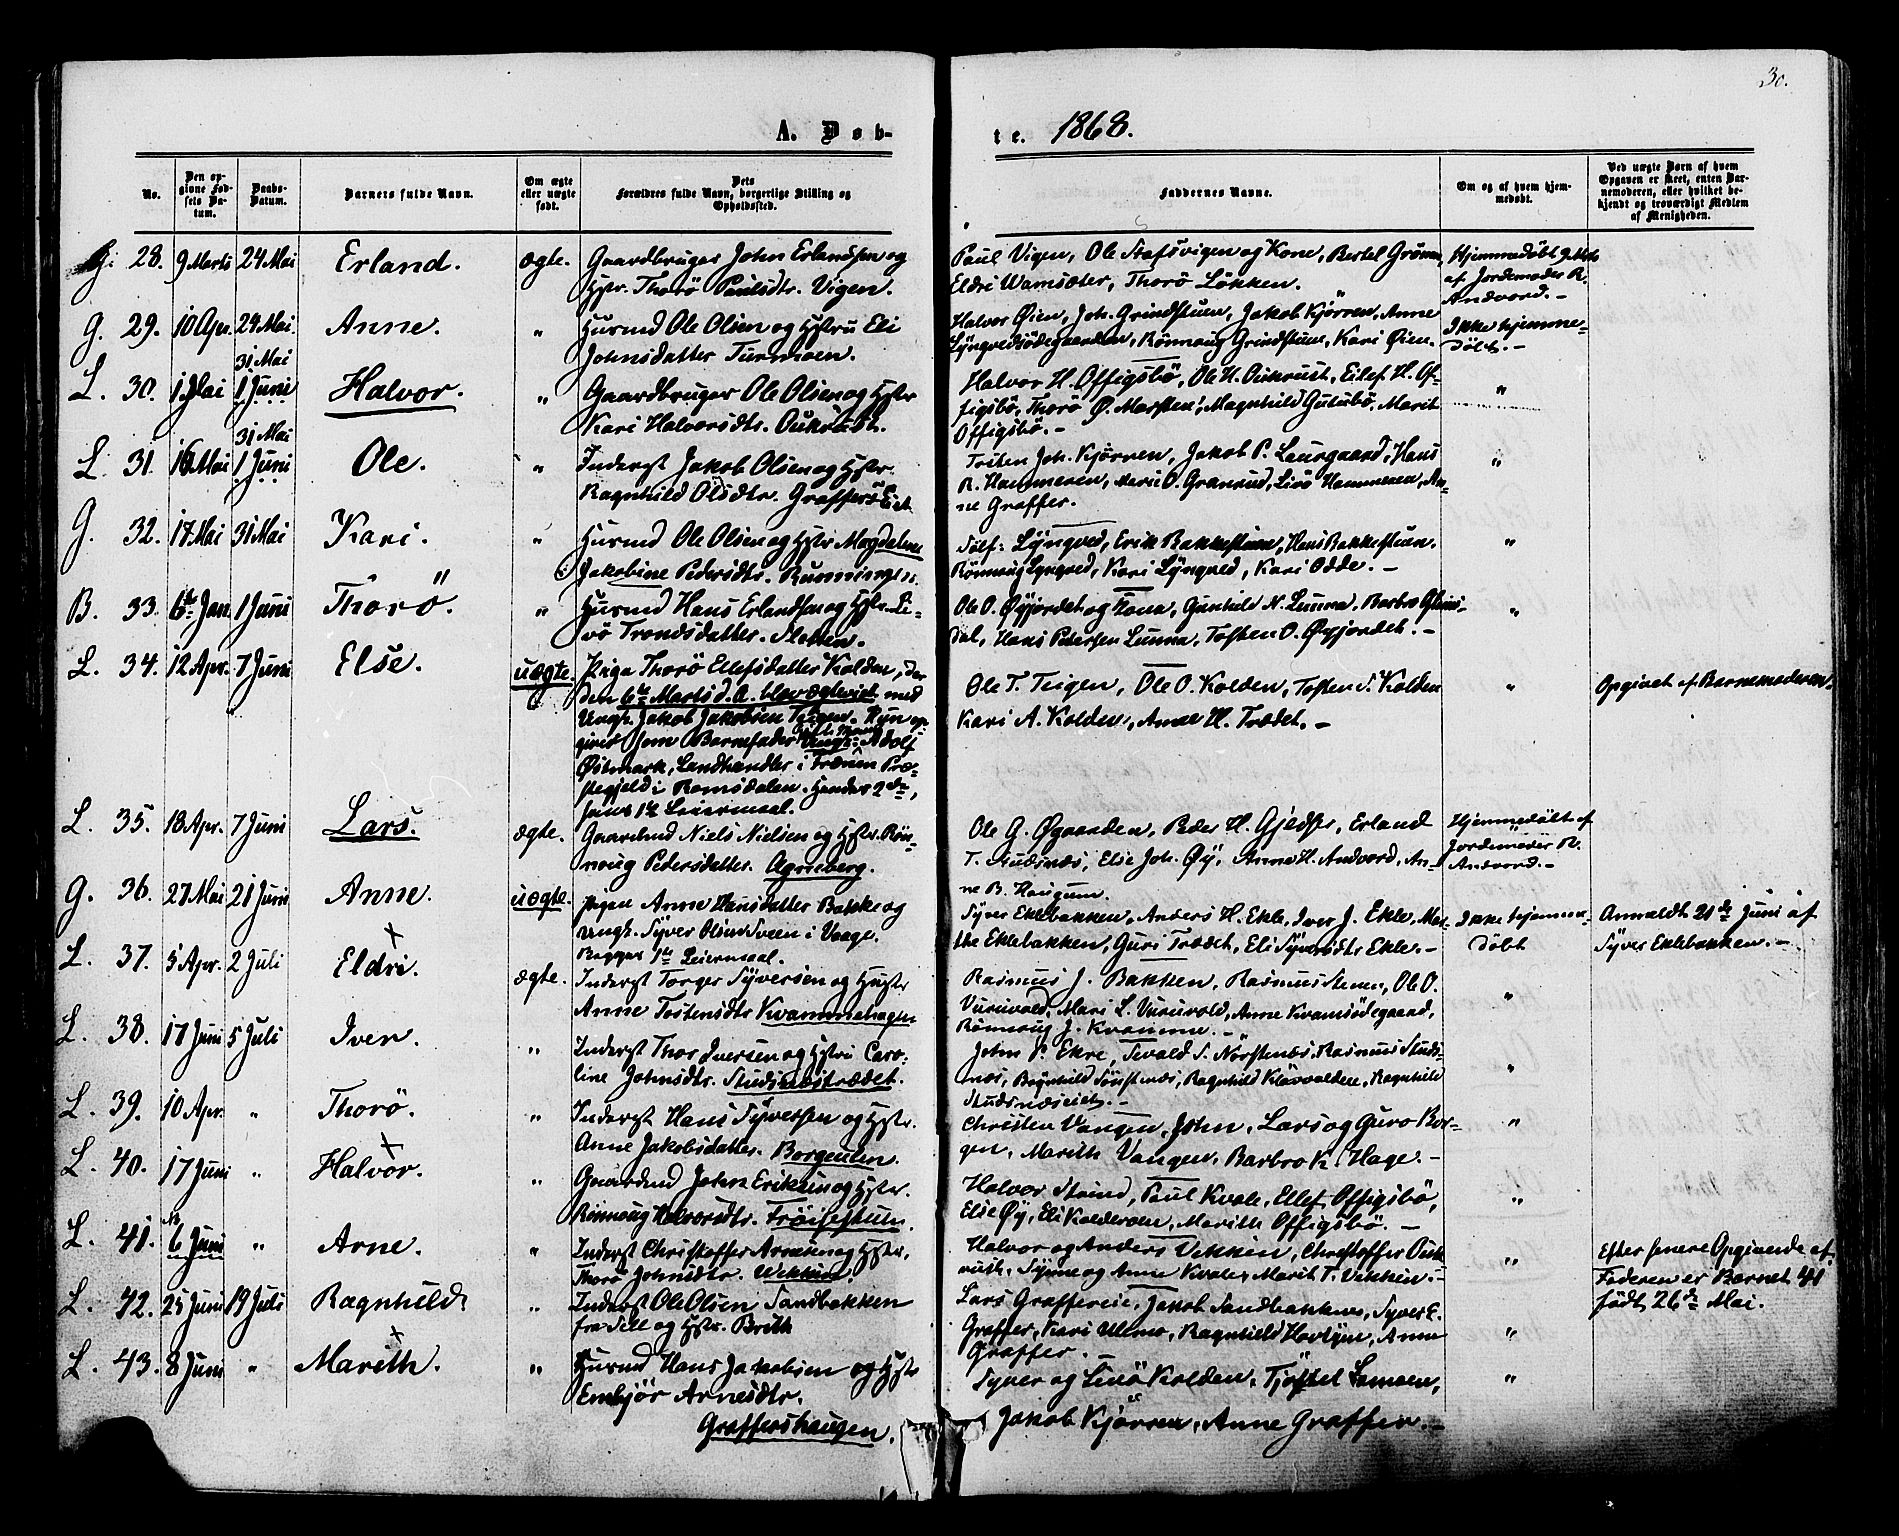 30.
A. Døb-
te. 1868.
No.
Den op-
givne Fød-
sels Da-
tum.
Daabs-
Datum.
Barnets fulde Navn.
Om ægte
eller uægte
født.
Dets
Forældres fulde Navn, borgerlige Stilling og
Opholdssted.
Faddernes Navne.
Om og af hvem hjem-
medøbt.
Ved uægte Børn af hvem
Opgaven er skeet, enten Bar-
nemoderen, eller hvilket be-
kjendt og troværdigt Medlem
af Menigheden.
G. 28. 9 Marts 24 Mai Erland. ægte. Gaardbruger John Erlandsen og
Hstr. Thorö Paulsdtr. Vigen.
Paul Vigen, Ole Stafsvigen og Kone, Bertel
Eldri Wamsæter, Thorö Lökken.
Hjemmedöbt
af Jordemoder R.
Andvord. -
G. 29. 10 Apr. 24 Mai. Anne. " Husmd Ole Olsen og Hstru Eli
Johnsdatter Turmoen.
Halvor Öien, Joh. Grindstuen, Jakob Kjörren, Anne
Lyngvedsödegaarden, Rönnaug Grindstuen, Kari Öien.
Ikke hjemme-
döbt. -
L. 30. 1 Mai 31 Mai
1 Juni Halvor. " Gaardbruger Ole Olsen og Hstr
Kari Halvorsdtr. Oukrust.
Halvor H. Offigsbö, Ole H. Oukrust, Eilef H. Of-
figsbö, Thorö Ö. Marsten, Magnhild Gutubö, Marit
Offigsbö. -
"
L. 31. 16 Mai 31 Mai
1 Juni Ole. " Inderst Jakob Olsen og Hstr.
Ragnhild Olsdtr. Graffers Eie.
Tosten Joh. Kjörren, Jakob P. Laurgaard, Hans
R. Hammeren, Mari O. Granrud, Livö Hammeren, An-
ne Graffer.
"
G. 32. 17 Mai 31 Mai Kari. " Husmd Ole Olsen og Hstr Magdalene
Jakobine Pedersdtr. Runningen.
Tolf: Lyngved, Erik Bakkestuen, Hans Bakkestuen.
Rönnaug Lyngved, Kari Lyngved, Kari Odde. -
"
B. 33. 6te Jan. 1 Juni Thorö. " Husmd Hans Erlandsen og Hstr. Li-
vö Trondsdatter. Sletten.
Ole O. Öyjordet og Kona, Gunhild N. Lunna, Barbro Glims-
dal, Hans Pedersen Lunna, Tosten O. Öyjordet. -
"
L. 34. 12 Apr. 7 Juni Else. uægte. Pige Thorö Ellefsdatter Kolden, der
den 6te Marts d. A. blev ægteviet med
Ungk. Jakob Jakobsen Teigen. Hun op-
giver som Barnefader Ungk. Adolf
Östmark, Landhandler i Præ-
stegjeld i Romsdalen. Hendes 2det,
hans 1ste Leiermaal.
Ole T. Teigen, Ole O. Kolden, Tosten S. Kolden
Kari A. Kolden, Anne H. Trædet. -
"
Opgivet af Barnemoderen.
L. 35. 18 Apr. 7 Juni Lars. ægte. Gaardmd Niels Nielsen og Hstr. Rön-
noug Pedersdatter. Agneberg.
Ole G. Ögaarden, Peder H. Gjeldser, Erland
T. Studsnæs, Else Joh. Öy, Anne H. Andvord, An-
ne B. Haugum.
Hjemmedöbt af
Jordemoder R.
Andvord. -
G. 36. 27 Mai 21 Juni Anne. uægte. Pigen Anne Hansdatter Bakke og
Ungk. Syver Olsen Sveen i Vaage.
Begges 1ste Leiermaal.
Syver Eklebakken, Anders H. Ekle, Iver J. Ekle, Mar-
the Eklebakken, Guri Trædet, Eli Syversdtr Ekle. -
Ikke hjemme-
döbt
Anmeldt 21de Juni af
Syver Eklebakken. -
L. 37. 5 Apr. 2 Juli Eldri. ægte. Inderst Torger Syversen og Hustr
Anne Tostensdtr Kvammehagen
Rasmus J. Bakken, Rasmus Stenen, Ole O.
Vuruvold, Mari L. Vuruvold, Anne Kvamsödegaard,
Rönnaug J. Kvamme. -
"
L. 38. 17 Juni 5 Juli Iver. " Inderst Thor Iversen og Hstru Caro-
line Johnsdtr. Studsnæstrædet.
John P. Ekre, Sevald S. Nörstenæs, Rasmus Studs-
næs, Ragnhild Nörstenæs, Ragnhild Kleivolden, Ragnhild
Studsnæseiet. -
"
L. 39. 10 Apr. " Thorö. " Inderst Hans Syversen og Hstr.
Anne Jakobsdatter. Borgenlien.
Christen Vangen, John, Lars og Guro Bor-
gen, Marith Vangen, Barbro K. Hage. -
"
L. 40. 17 Juni " Halvor. " Gaardmd John Eriksen og Hstr.
Rönnoug Halvorsdtr. Fröisestuen.
Halvor Strind, Paul Kvale, Ellef Offigsbö,
Else Öy, Eli Kolderoen, Marith Offigsbö. -
"
L. 41. NB
6 Juni " Arne. " Inderst Christoffer Arnesen og Hstr.
Thorö Johnsdtr. Wekkin.
Halvor og Anders Vekkin, Christoffer Ouk-
rust, Synne og Anne Kvale, Marit T. Vikkin. -
"
Efter senere Opgivende af
Faderen er Barnet 41
födt 26de Mai.
L. 42. 25 Juni 19 Juli Ragnhild " Inderst Ole Olsen Sandbakken
fra Sell og Hstr. Brith
Lars Graffereie, Jakob Sandbakken, Syver E.
Graffer, Kari Ulmo, Ragnhild Hovtyn, Anne
Graffer.
"
L. 43. 8 Juni " Marith. " Husmd Hans Jakobsen og Hstr
Embjör Arnesdtr.
Graffershaugen.
Syver og Livö Kolden, Tjöstel Lamoen,
Jakob Kjörren, Anne Graffer. -
"